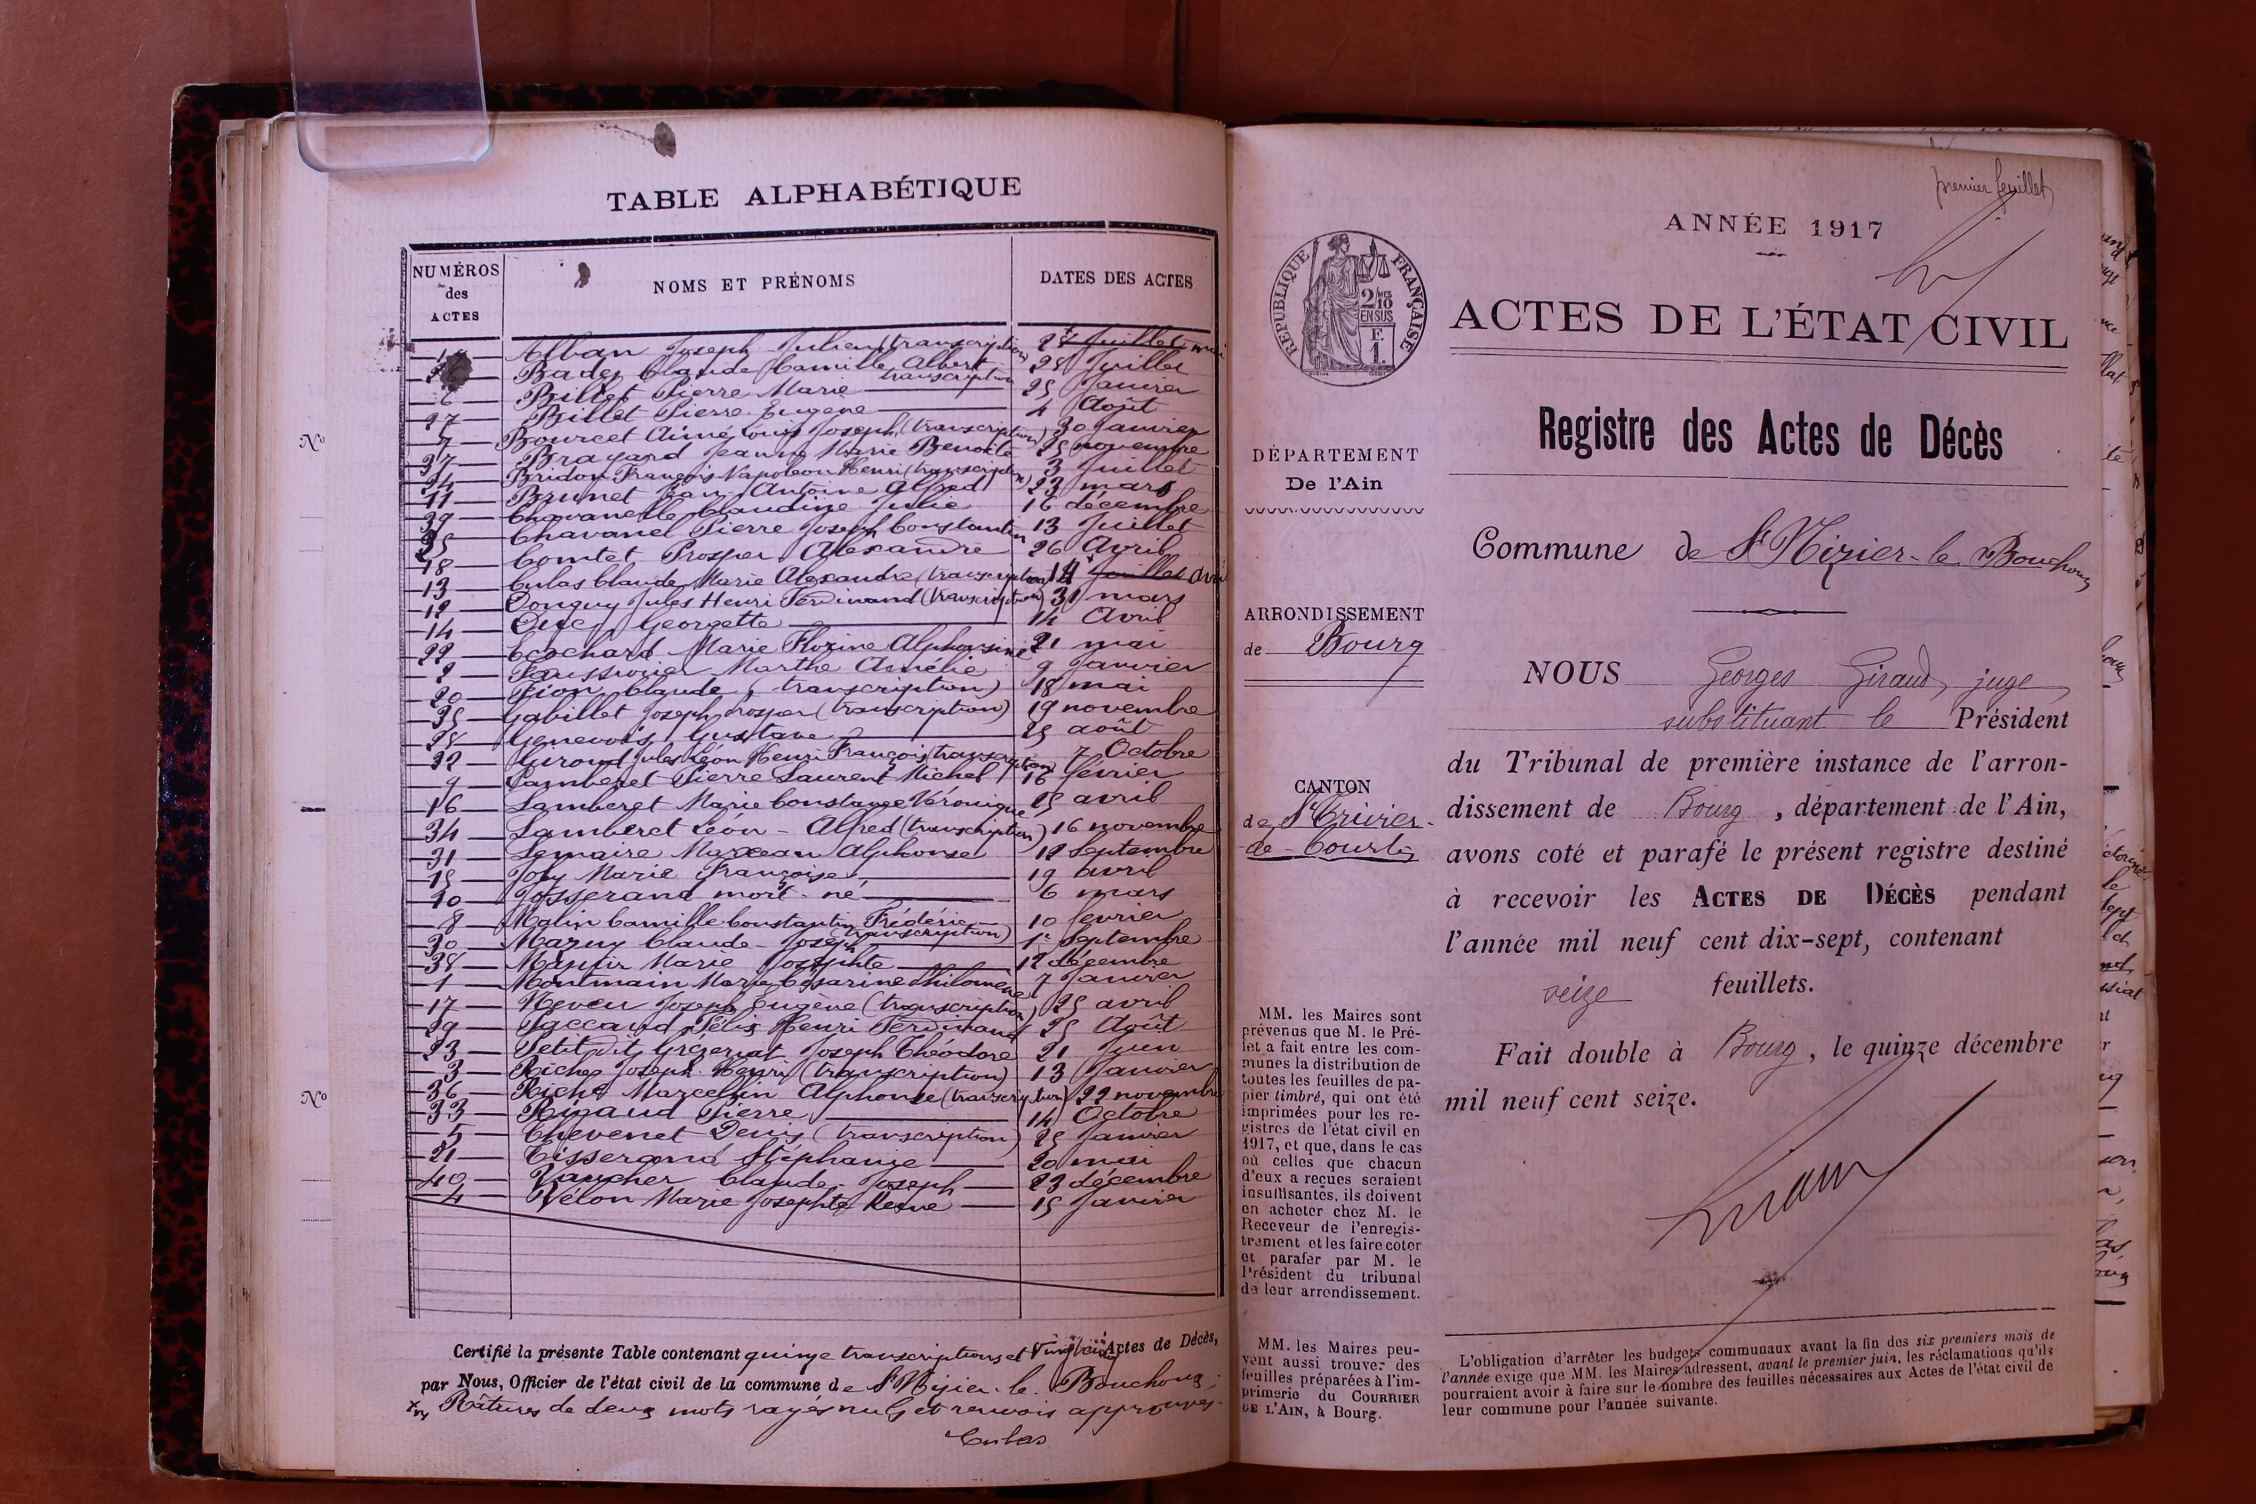 TABLE ALPHABÉTIQUE
NUMÉROS des ACTES
NOMS ET PRÉNOMS
DATES DES ACTES
Alban Joseph Julien (transcription) 24 Juillet mai
Badez Claude Camille Albert 28 Juillet
6 Billet Pierre Marie transcription 25 Janvier
27 Billet Pierre Eugène 4 Août
7 Bourcet Aimé Louis Joseph (transcription) 30 Janvier
37 Brayard Jeanne Marie Benoite 25 novembre
24 Bridon François Napoléon Henri (transcription) 3 Juillet
11 Brunet Jean Antoine Alfred 23 mars
39 Chavanelle Claudine Julie 16 décembre
25 Chavanel Pierre Joseph Constantin 13 Juillet
18 Comtet Prosper Alexandre 26 Avril
13 Culas Claude Marie Alexandre (transcription) 14 Juillet avril
12 Donguy Jules Henri Ferdinand (transcription) 31 mars
14 Georgette 14 Avril
22 Ecochard Marie Florine Alphonsine 21 mai
2 Marthe Amélie 9 Janvier
20 Fion Claude (transcription) 18 mai
35 Gabillet Joseph Prosper (transcription) 19 novembre
28 Genevois Gustave 25 août
32 Guroud Jules Léon Henri François (transcription) 7 Octobre
9 Lamberet Pierre Laurent Michel 16 février
16 Lamberet Marie Constance Véronique 25 avril
34 Lamberet Léon-Alfred (transcription) 16 novembre
31 Lemaire Marceau Alphonse 12 Septembre
15 Joly Marie Françoise 19 avril
10 Josserand mort-né 6 mars
8 Malin Camille Constantin Frédéric 10 février
30 Mazuy Claude-Joseph (transcription) 1er Septembre
38 Marie Josephte 12 décembre
1 Montmain Marie Césarine Philomène 7 Janvier
17 Neveu Joseph Eugène (transcription) 25 avril
29 Paccaud Félix Henri Ferdinand 25 Août
23 Petit dit Grézeriat Joseph Théodore 21 Juin
3 Riche Joseph Henri (transcription) 13 Janvier
36 Riche Marcellin Alphonse (transcription) 22 novembre
33 Rigaud Pierre 14 Octobre
5 Thevenet Denis (transcription) 25 Janvier
21 Tisserand Stéphanie 20 mai
40 Vaucher Claude-Joseph 23 décembre
4 Velon Marie Josephte Reine 15 Janvier
Certifié la présente Table contenant quinze transcriptions et Vingt cinq Actes de Décès,
par Nous, Officier de l'état civil de la commune de St Nizier-le-Bouchoux;
Râtures de deux mots rayés nuls et renvois approuvés.
Culas
No
No
premier feuillet
ANNÉE 1917
RÉPUBLIQUE FRANÇAISE
2/10 EN SUS
F. 1.
ACTES DE L'ÉTAT CIVIL
Registre des Actes de Décès
DÉPARTEMENT
De l'Ain
Commune de St Nizier-le-Bouchoux
ARRONDISSEMENT
de Bourg
CANTON
de St Trivier-
de-Courtes
NOUS Georges Giraud, juge
substituant le Président
du Tribunal de première instance de l'arron-
dissement de Bourg, département de l'Ain,
avons coté et parafé le présent registre destiné
à recevoir les ACTES DE DÉCÈS pendant
l'année mil neuf cent dix-sept, contenant
seize feuillets.
Fait double à Bourg, le quinze décembre
mil neuf cent seize.
MM. les Maires sont
prévenus que M. le Pré-
fet a fait entre les com-
munes la distribution de
toutes les feuilles de pa-
pier timbré, qui ont été
imprimées pour les re-
gistres de l'état civil en
1917, et que, dans le cas
où celles que chacun
d'eux a reçues seraient
insuffisantes, ils doivent
en acheter chez M. le
Receveur de l'enregis-
trement et les faire coter
et parafer par M. le
Président du tribunal
de leur arrondissement.
MM. les Maires peu-
vent aussi trouver des
feuilles préparées à l'im-
primerie du COURRIER
DE L'AIN, à Bourg.
L'obligation d'arrêter les budgets communaux avant la fin des six premiers mois de
l'année exige que MM. les Maires adressent, avant le premier juin, les réclamations qu'ils
pourraient avoir à faire sur le nombre des feuilles nécessaires aux Actes de l'état civil de
leur commune pour l'année suivante.